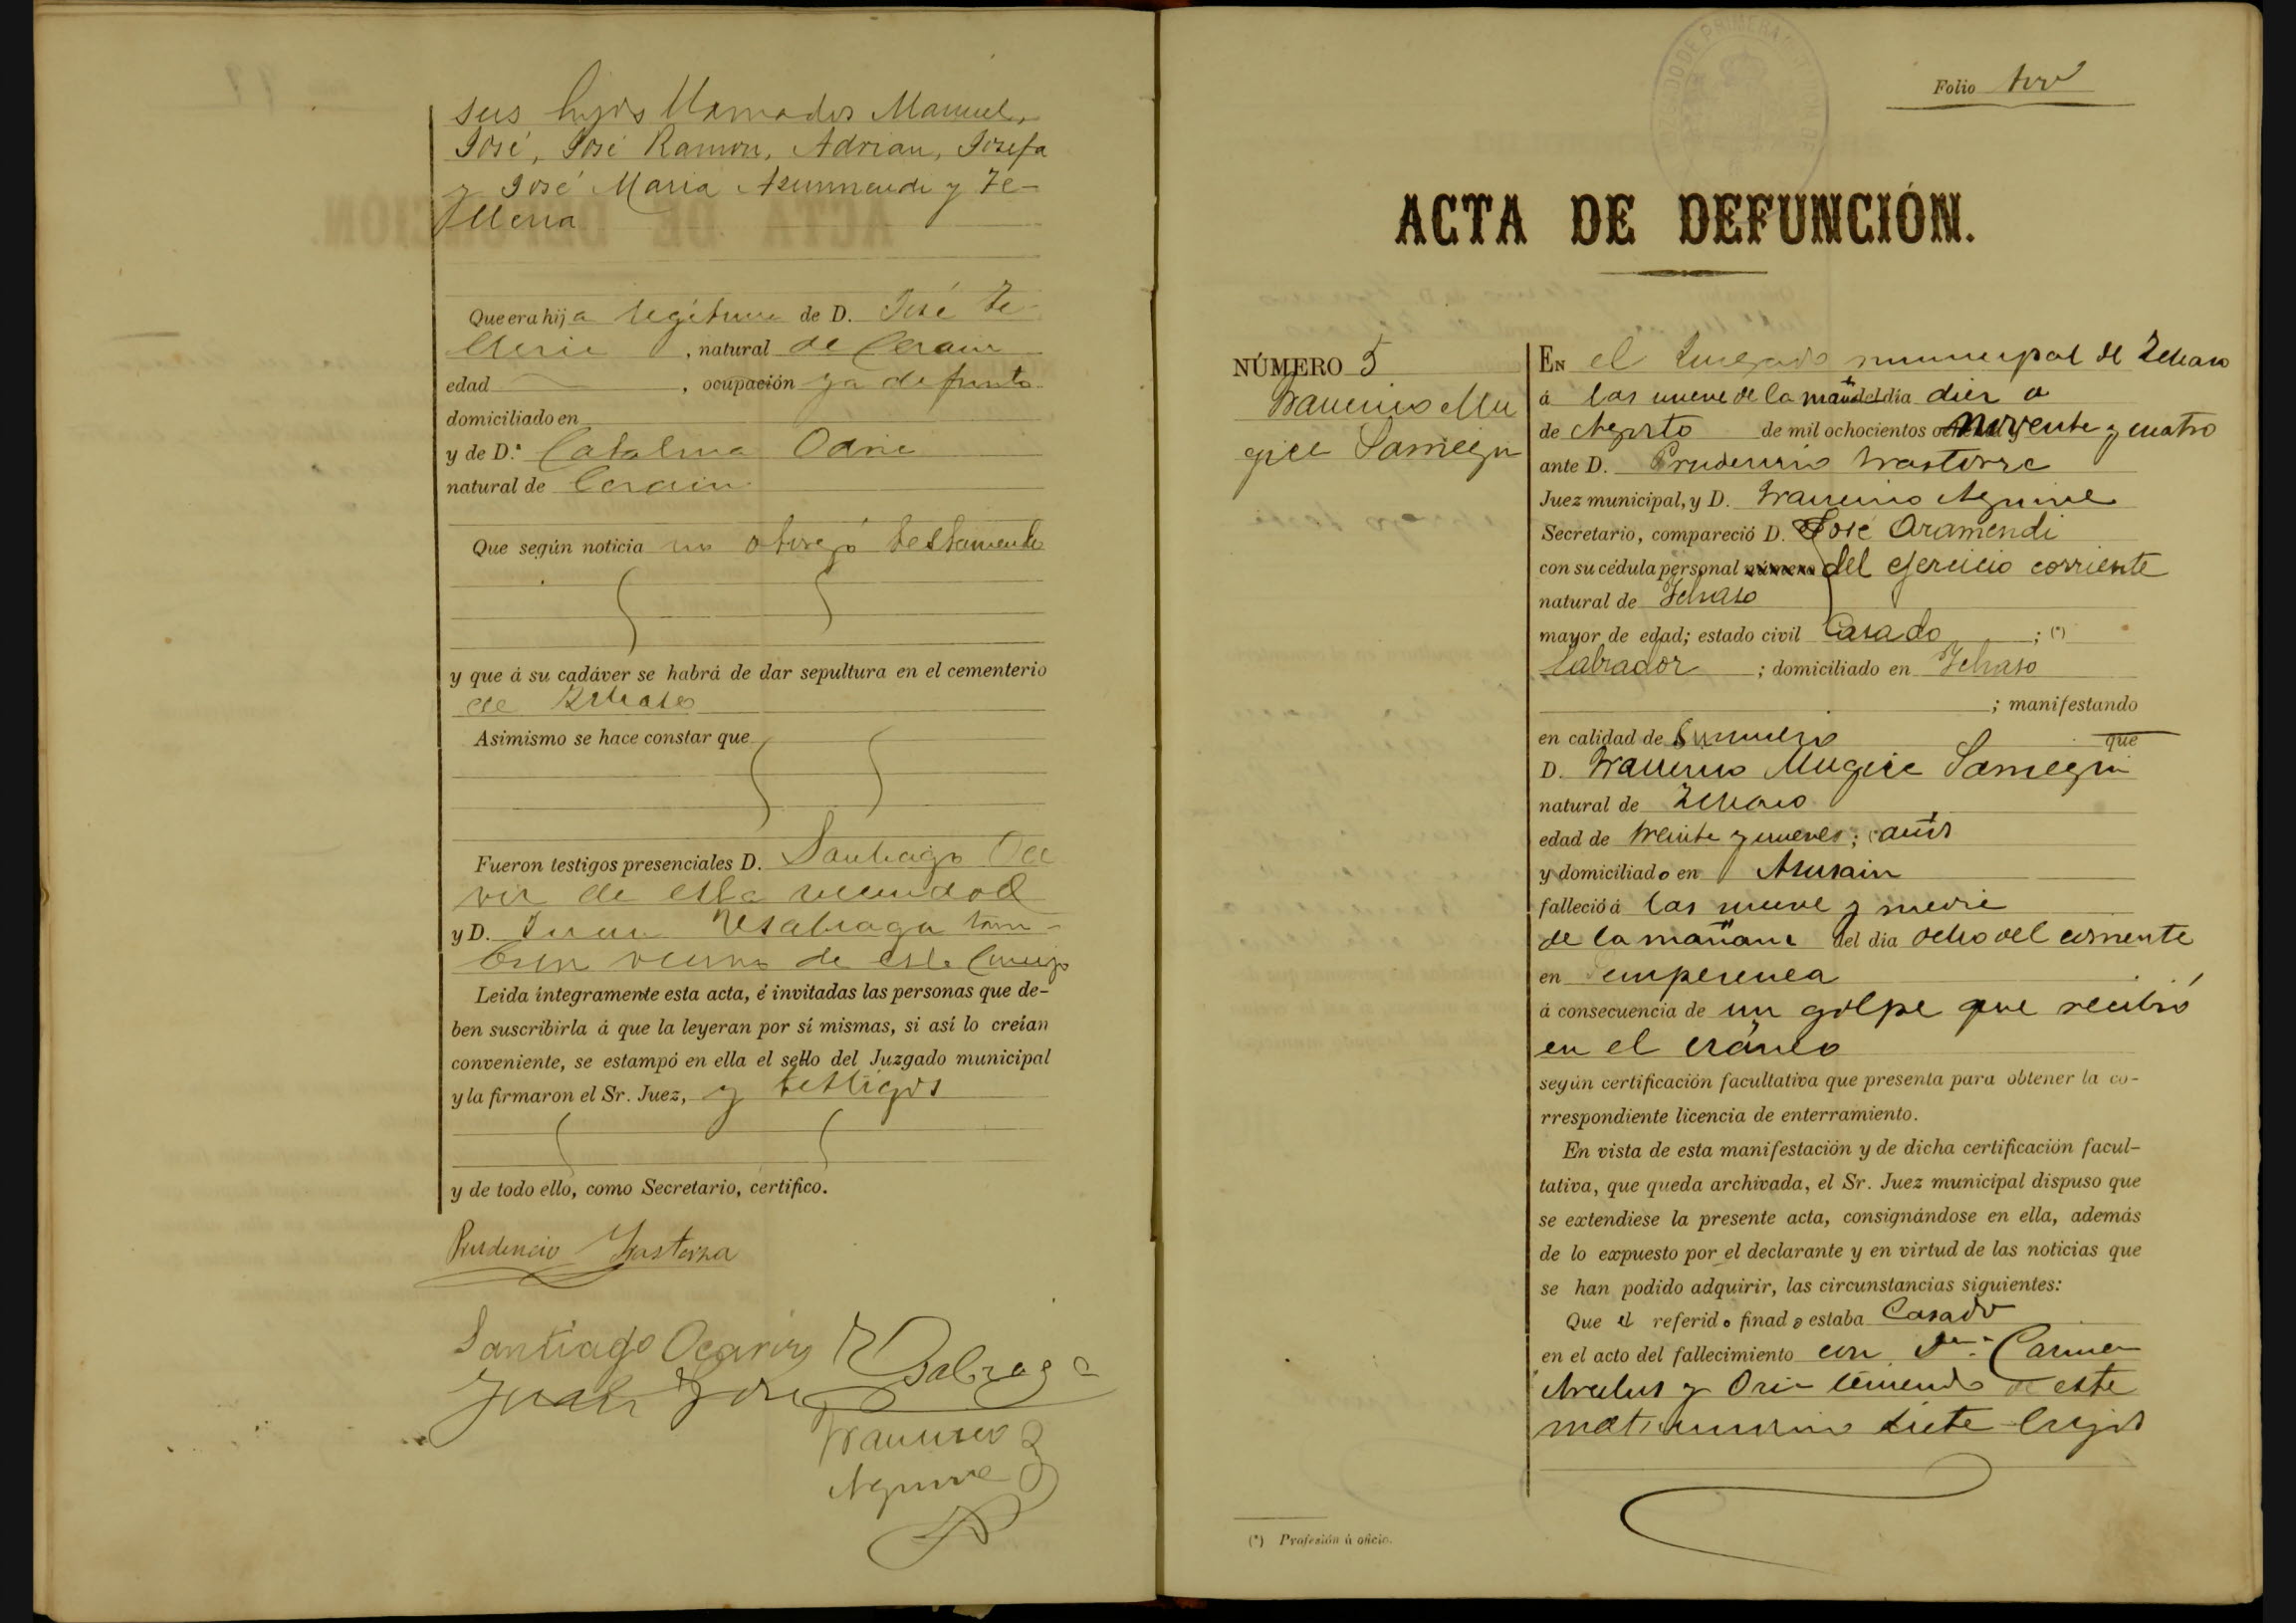 sus hijos llamados Manuel,
José, José Ramon, Adrian, Josefa
y José Maria Azurmendi y Te-
lleria
Que era hija legitima de D. José Te-
lleria, natural de Cerain
edad, ocupación ya difunto
domiciliado en
y de D.ª Catalina Odria
natural de Cerain
Que según noticia no otorgó testamento
y que á su cadáver se habrá de dar sepultura en el cementerio
de Ichaso
Asimismo se hace constar que
Fueron testigos presenciales D. Santiago Oca
riz de esta vecindad
y D. Juan Usabiaga tam-
bien vecino de este Concejo
Leida íntegramente esta acta, é invitadas las personas que de-
ben suscribirla á que la leyeran por sí mismas, si así lo creían
conveniente, se estampó en ella el sello del Juzgado municipal
y la firmaron el Sr. Juez, y testigos
y de todo ello, como Secretario, certifico.
Prudencio Irastorza
Santiago Ocariz
Juan José Usabiaga
Francisco
Aguirre
Folio tres
ACTA DE DEFUNCIÓN.
NÚMERO 5
Francisco Mu
gica Sarriegui
EN el Juzgado municipal de Ichaso
á las nueve de la mañª del día diez
de Agosto de mil ochocientos noventa y cuatro
ante D. Prudencio Irastorza
Juez municipal, y D. Francisco Aguirre
Secretario, compareció D. José Aramendi
con su cédula personal número del ejercicio corriente
natural de Ichaso
mayor de edad; estado civil Casado; (*)
Labrador; domiciliado en Ichaso
; manifestando
en calidad de que
D. Francisco Mugica Sarriegui
natural de Ichaso
edad de treinta y nueve; años
y domiciliado en Arusain
falleció á las nueve y media
de la mañana del dia ocho del corriente
en
á consecuencia de un golpe que recibió
en el cráneo
según certificación facultativa que presenta para obtener la co-
rrespondiente licencia de enterramiento.
En vista de esta manifestación y de dicha certificación facul-
tativa, que queda archivada, el Sr. Juez municipal dispuso que
se extendiese la presente acta, consignándose en ella, además
de lo expuesto por el declarante y en virtud de las noticias que
se han podido adquirir, las circunstancias siguientes:
Que el referido finado estaba Casado
en el acto del fallecimiento con Dª. Carmen
y Oria teniendo de este
matrimonio siete hijos
(*) Profesión ú oficio.